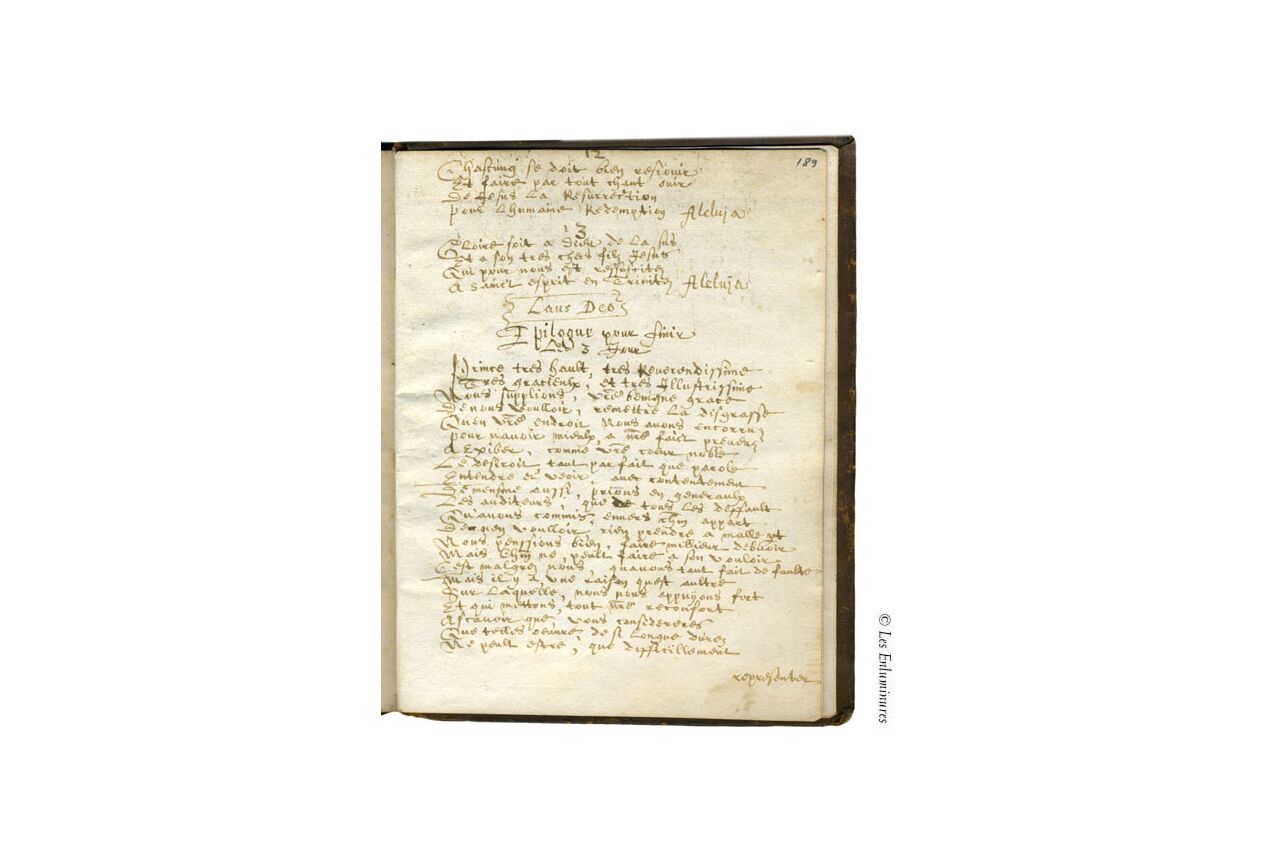 189
12
Chascung se doit bien resiouir
Et faire par tout chant ouir
De Jesus La Resurrection
pour Lhumaine Redemption Aleluja
13
Gloire soit a dieu de La sus
Et a son tres chers filz Jesus
Qui pour nous est ressuscitez
A sainct esprit en Trinitez Aleluja
Laus Deo
Epilogue pour finir
Le 3 Jour
Prince tres hault, tres Reverendissime
Tres gracieulx, et tres Illustrissime
Nous supplions, vre benigne grace
De nous voulloir, remettre La disgrasse
Quen vre endroit Nous auons encorruz
pour nauoir mieulx, a nre faict
A Exiber, comme vre coeur noble
Le desiroit, tant parfait que parole
Entendre et veoir, auec contentement
De mensme aussi, prions en generaulx
Les auditeurs, que de tous Les deffault
Qu'auons commis, enuers
De nen voulloir rien prendre a malle pt
Nous penssions bien, faire millieur debuoir
Mais ne peult faire a son vouloir
C'est malgrez nous, quauons tant fait de faulte
Mais il y a, vne raison quest aultre
Sur Laquelle, nous nous appuyons fort
Et qui mettons, tout nre reconfort
Ascauoir que, vous considereres
Que telles oeuure, de si Longue durez
Ne peult estre, que difficillement
representer
© Les Enluminures